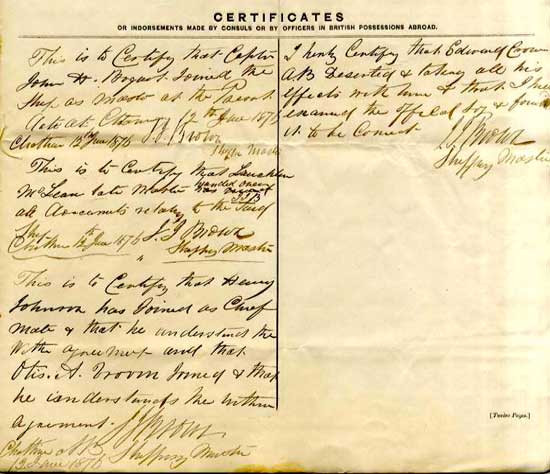 CERTIFICATES
OR INDORSEMENTS MADE BY CONSULS OR BY OFFICERS IN BRITISH POSSESSIONS ABROAD.
This is to Certify that Captn
John H. Bogart Joined the
Ship as master at the
at Chatham 12th June 1876
Chatham 12th June 1876 J. J. Brown
Shippg Master
This is to Certify that Lauchlan
McLean late Master handed over
all Documents relating to the Said
Ship
Chatham 12th June 1876 J. J. Brown
Shipping Master
This is to Certify that Henry
Johnson has Joined as Chief
mate & that he understand the
Withn agreement and that
Otis. A. Vroom Joined & that
he understands the within
agreement. J J Brown
Chatham
June 1876 Shipping Master
I hereby Certify that Edward
AB Deserted & taking all his
effects with him & that I have
examined the official Log & found
it to be Correct
J J Brown
Shipping Master
[Twelve Pages.]